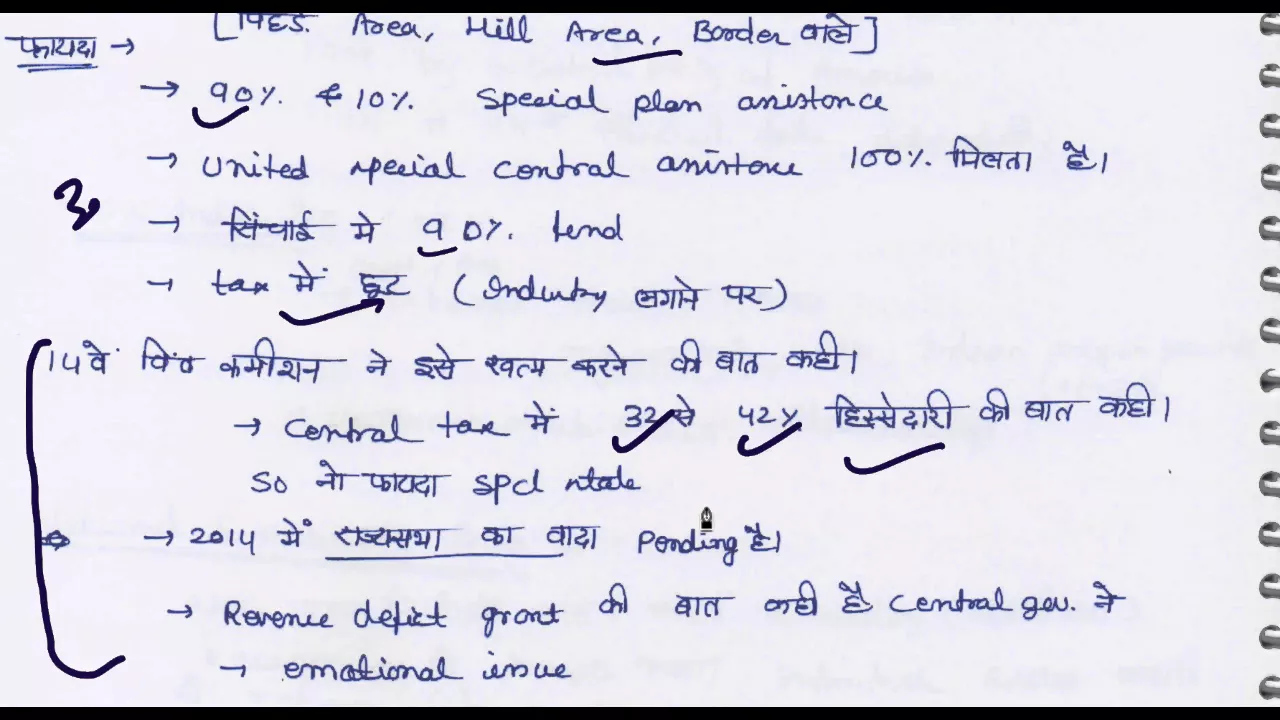 [पिछड़े. Area, Hill Area, Border वाले]
फायदा →
→ 90%. & 10% Special plan assistance
→ United special central assistance 100%. मिलता है।
→ सिंचाई में 90%. fund
→ tax में छूट (Industry लगाने पर)
14वें वित्त कमीशन ने इसे खत्म करने की बात कही।
→ Central tax में 32 से 42% हिस्सेदारी की बात कही।
So नो फायदा spcl state
→ 2014 में राज्यसभा का वादा Pending है।
→ Revenue deficit grant की बात कही है Central gov. ने
→ emotional issue